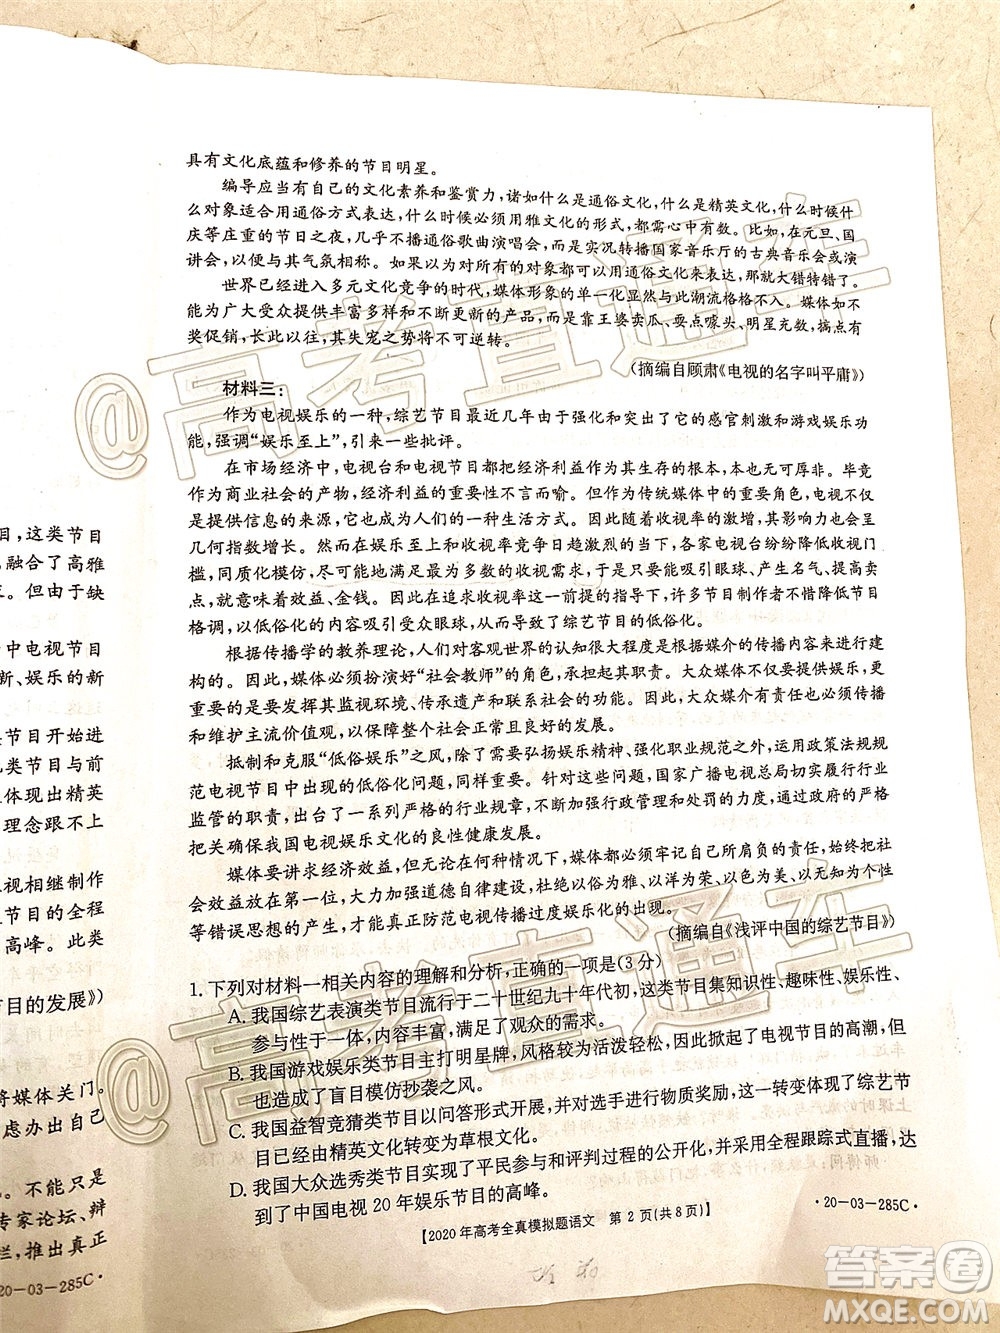 具有文化底蕴和修养的节目明星。
编导应当有自己的文化素养和鉴赏力,诸如什么是通俗文化,什么是精英文化,什么时候什
么对象适合用通俗方式表达,什么时候必须用雅文化的形式,都需心中有数。比如,在元旦、国
庆等庄重的节日之夜,几乎不播通俗歌曲演唱会,而是实况转播国家音乐厅的古典音乐会或演
讲会,以与其气氛相称。如果以为对所有的对象都可以用通俗文化来表达,那就大错特错了。
世界已经进入多元文化竞争的时代,媒体形象的单一化显然与此潮流格格不入。媒体如不
能为广大受众提供丰富多样和不断更新的产品,而是靠王婆卖瓜、耍点噱头、明星充数、搞点有
奖促销,长此以往,其失宠之势将不可逆转。
(摘编自顾肃《电视的名字叫平庸》)
材料三:
作为电视娱乐的一种,综艺节目最近几年由于强化和突出了它的感官刺激和游戏娱乐功
能,强调“娱乐至上”,引来一些批评。
在市场经济中,电视台和电视节目都把经济利益作为生存的根本,这一点无可厚非。毕竟
作为商业社会的产物,经济利益的重要性不言而喻。但作为传统媒体中的重要角色,电视不仅
是提供信息的来源,它成为人们的一种生活方式。因此随着收视率的激增,其关注度和影响力
几何指数增长。然而在娱乐至上和收视率竞争日趋激烈的今天,各家电视台纷纷降低收视门
槛,同质化模仿,尽可能地满足最为多数的收视需求,于是不断以吸引眼球、产生名气、提高卖
点,就意味着效益、金钱。因此在追求收视率这一前提的指导下,许多节目制作者不惜降低节目
格调,以低俗化的内容吸引受众眼球,从而导致了综艺节目的低俗化。
根据传播学的教养理论,人们对客观世界的认识很大程度上是根据媒介的传播内容来进行建
构的。因此,媒体必须扮演好“社会教师”的角色,担其职责。大众媒体不仅要提供娱乐,而且
更重要的是要发挥其监视环境、传承遗产和联系社会的功能。因此,大众媒介也必须传播
和维护主流价值观,以保障整个社会正常且良好的发展。
抵制和克服“低俗娱乐”之风,除了需要弘扬娱乐精神、强化职业规范之外,运用政策法规规
范电视节目中出现的低俗化问题,同样重要。针对这些问题,国家广播电视总局切实履行行业
监管的职责,出台了一系列严格的行业规章,不断加强行政管理和处罚的力度,通过政府的严格
把关确保我国电视娱乐文化的良性健康发展。
媒体要讲求经济效益,但无论在何种情况下,媒体都必须牢记自己所肩负的责任,始终把社会
效益放在第一位,大力加强道德自律建设,杜绝以俗为雅、以洋为荣、以美色
等错误思想的产生,才能真正防范电视传播过度娱乐化的出现。
(摘编自《浅评中国的综艺节目》)
1. 下列对材料一相关内容的理解和分析,正确的一项是(3分)
A. 我国综艺表演类节目流行于二十世纪九十年代初,这类节目集知识性、趣味性、娱乐性、
参与性于一体,内容丰富,满足了观众的需求。
B. 我国游戏娱乐类节目主打明星牌,风格较为活泼轻松,因此掀起了电视节目的高潮,但
也造成了盲目模仿抄袭之风。
C. 我国益智竞猜类节目以问答形式展现,并对选手进行物质奖励,这一转变体现了综艺节
目已经由精英文化转变为草根文化。
D. 我国大众选秀类节目实现了平民参与和评判过程的公开化,并采用全程跟踪式直播,达
到了中国电视20年娱乐节目的高峰。
【2020年高考全真模拟题语文 第2页(共8页)】
·20-03-285C·
目,这类节目
融合了高雅
但由于缺
中电视节目
新、娱乐的新
节目开始进
类节目与前
体现出精英
理念跟不上
视相继制作
节目的全程
高峰。此类
节目的发展》)
将媒体关门。
虑办出自己
。不能只是
专家论坛、辩
栏,推出真正
20-03-285C·
@高考直通车
@高考直通车
答案圈
MXQE.COM